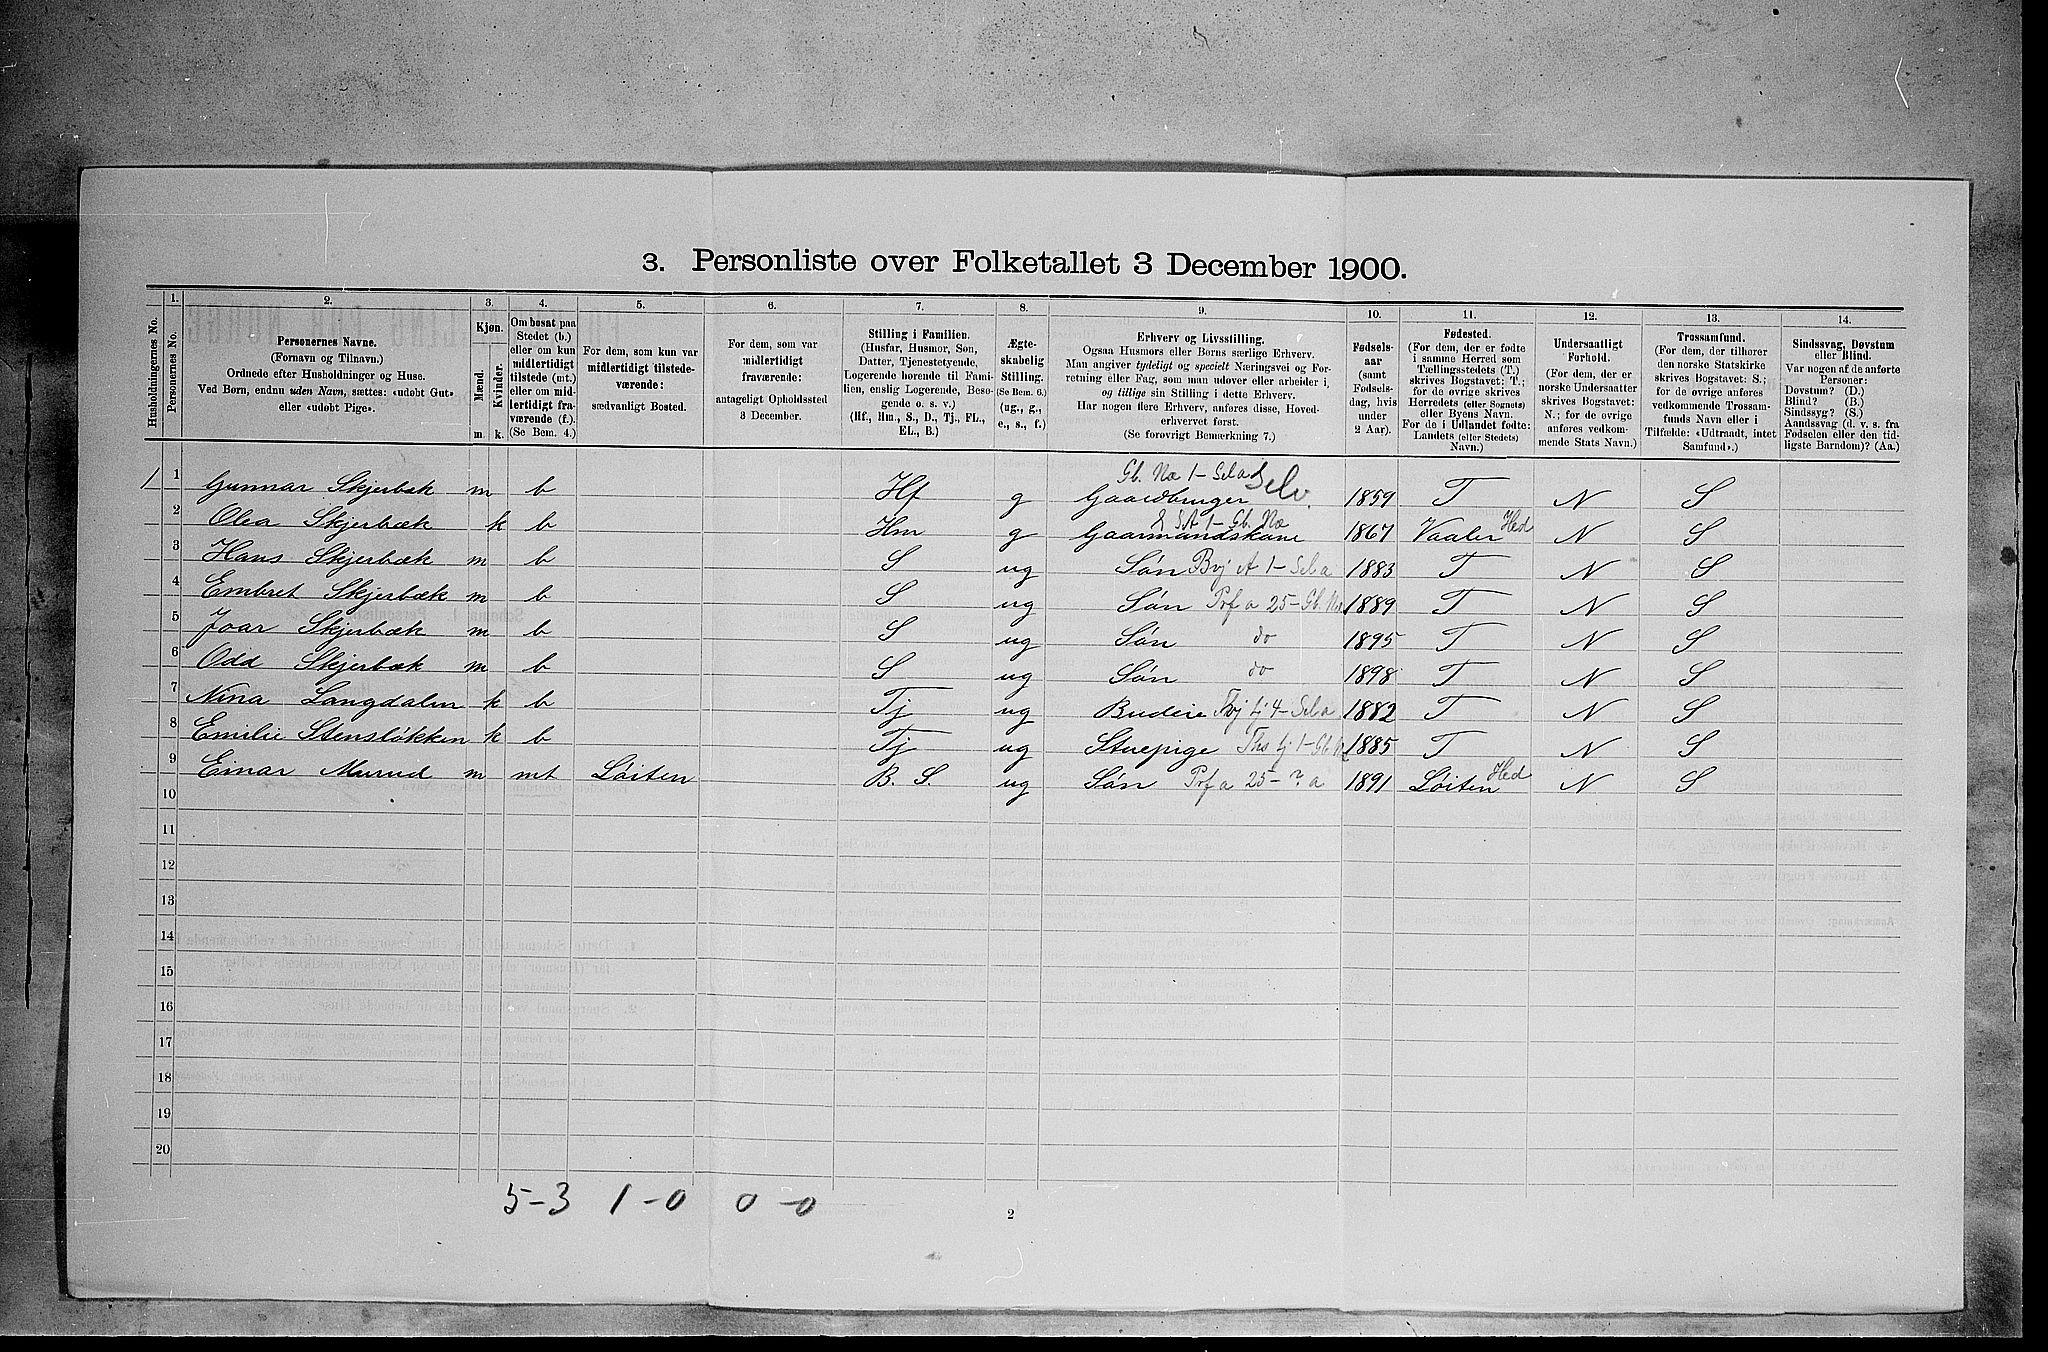 3. Personliste over Folketallet 3 December 1900.
Husholdningernes No.
1.
Personernes No.
2.
Personernes Navne.
(Fornavn og Tilnavn.)
Ordnede efter Husholdninger og Huse.
Ved Børn, endnu uden Navn, sættes: «udøbt Gut»
eller «udøbt Pige».
3.
Kjøn.
Mænd.
Kvinder.
m. k.
4.
Om bosat paa
Stedet (b.)
eller om kun
midlertidigt
tilstede (mt.)
eller om mid-
lertidigt fra-
værende (f.).
(Se Bem. 4.)
5.
For dem, som kun var
midlertidigt tilstede-
værende:
sædvanligt Bosted.
6.
For dem, som var
midlertidigt
fraværende:
antageligt Opholdssted
3 December.
7.
Stilling i Familien.
(Husfar, Husmor, Søn,
Datter, Tjenestetyende,
Logerende hørende til Fami-
lien, enslig Logerende, Besø-
gende o. s. v.)
(Hf., Hm., S., D., Tj., FL.,
EL., B.)
8.
Ægte-
skabelig
Stilling.
(Se Bem. 6.)
(ug., g.,
e., s., f.)
9.
Erhverv og Livsstilling.
Ogsaa Husmors eller Børns særlige Erhverv.
Man angiver tydeligt og specielt Næringsvei og For-
retning eller Fag, som man udøver eller arbeider i,
og tillige sin Stilling i dette Erhverv.
Har nogen flere Erhverv, anføres disse, Hoved-
erhvervet først.
(Se forøvrigt Bemærkning 7.)
10.
Fødsels-
aar
(samt
Fødsels-
dag, hvis
under
2 Aar).
11.
Fødested.
(For dem, der er fødte
i samme Herred som
Tællingsstedets (T.)
skrives Bogstavet: T.;
for de øvrige skrives
Herredets (eller Sognets)
eller Byens Navn.
For de i Udlandet fødte:
Landets (eller Stedets)
Navn.)
12.
Undersaatligt
Forhold.
(For dem, der er
norske Undersaatter
skrives Bogstavet:
N.; for de øvrige
anføres vedkom-
mende Stats Navn.)
13.
Trossamfund.
(For dem, der tilhører
den norske Statskirke
skrives Bogstavet: S.;
for de øvrige anføres
vedkommende Trossam-
funds Navn eller i
Tilfælde: «Udtraadt, intet
Samfund».)
14.
Sindssvag, Døvstum
eller Blind.
Var nogen af de anførte
Personer:
Døvstum? (D.)
Blind? (B.)
Sindssyg? (S.)
Aandssvag (d. v. s. fra
Fødselen eller den tid-
ligste Barndom)? (Aa.)
Gb. Næ 1- Selv.
1 1 Gunnar Skjerbæk m b Hf g Gaardbruger 1859 T N S
1- Gb. Næ
2 Olea Skjerbæk k b Hm g Gaarmandskone 1867 Vaaler Hed N S
3 Hans Skjerbæk m b S ug Søn 1883 T N S
4 Embret Skjerbæk m b S ug Søn Prf a 25- Gb. Næ 1889 T N S
5 Joar Skjerbæk m b S ug Søn do 1895 T N S
6 Odd Skjerbæk m b S ug Søn do 1898 T N S
7 Nina Langdalen k b Tj ug Budeie 1882 T N S
8 Emilie Stensløkken k b Tj ug Stuepige 1885 T N S
9 Einar Murud m mt Løiten B. S. ug Søn Prf a 25- ? a 1891 Løiten Hed N S
10
11
12
13
14
15
16
17
18
19
20
5-3 1-0 0-0
2